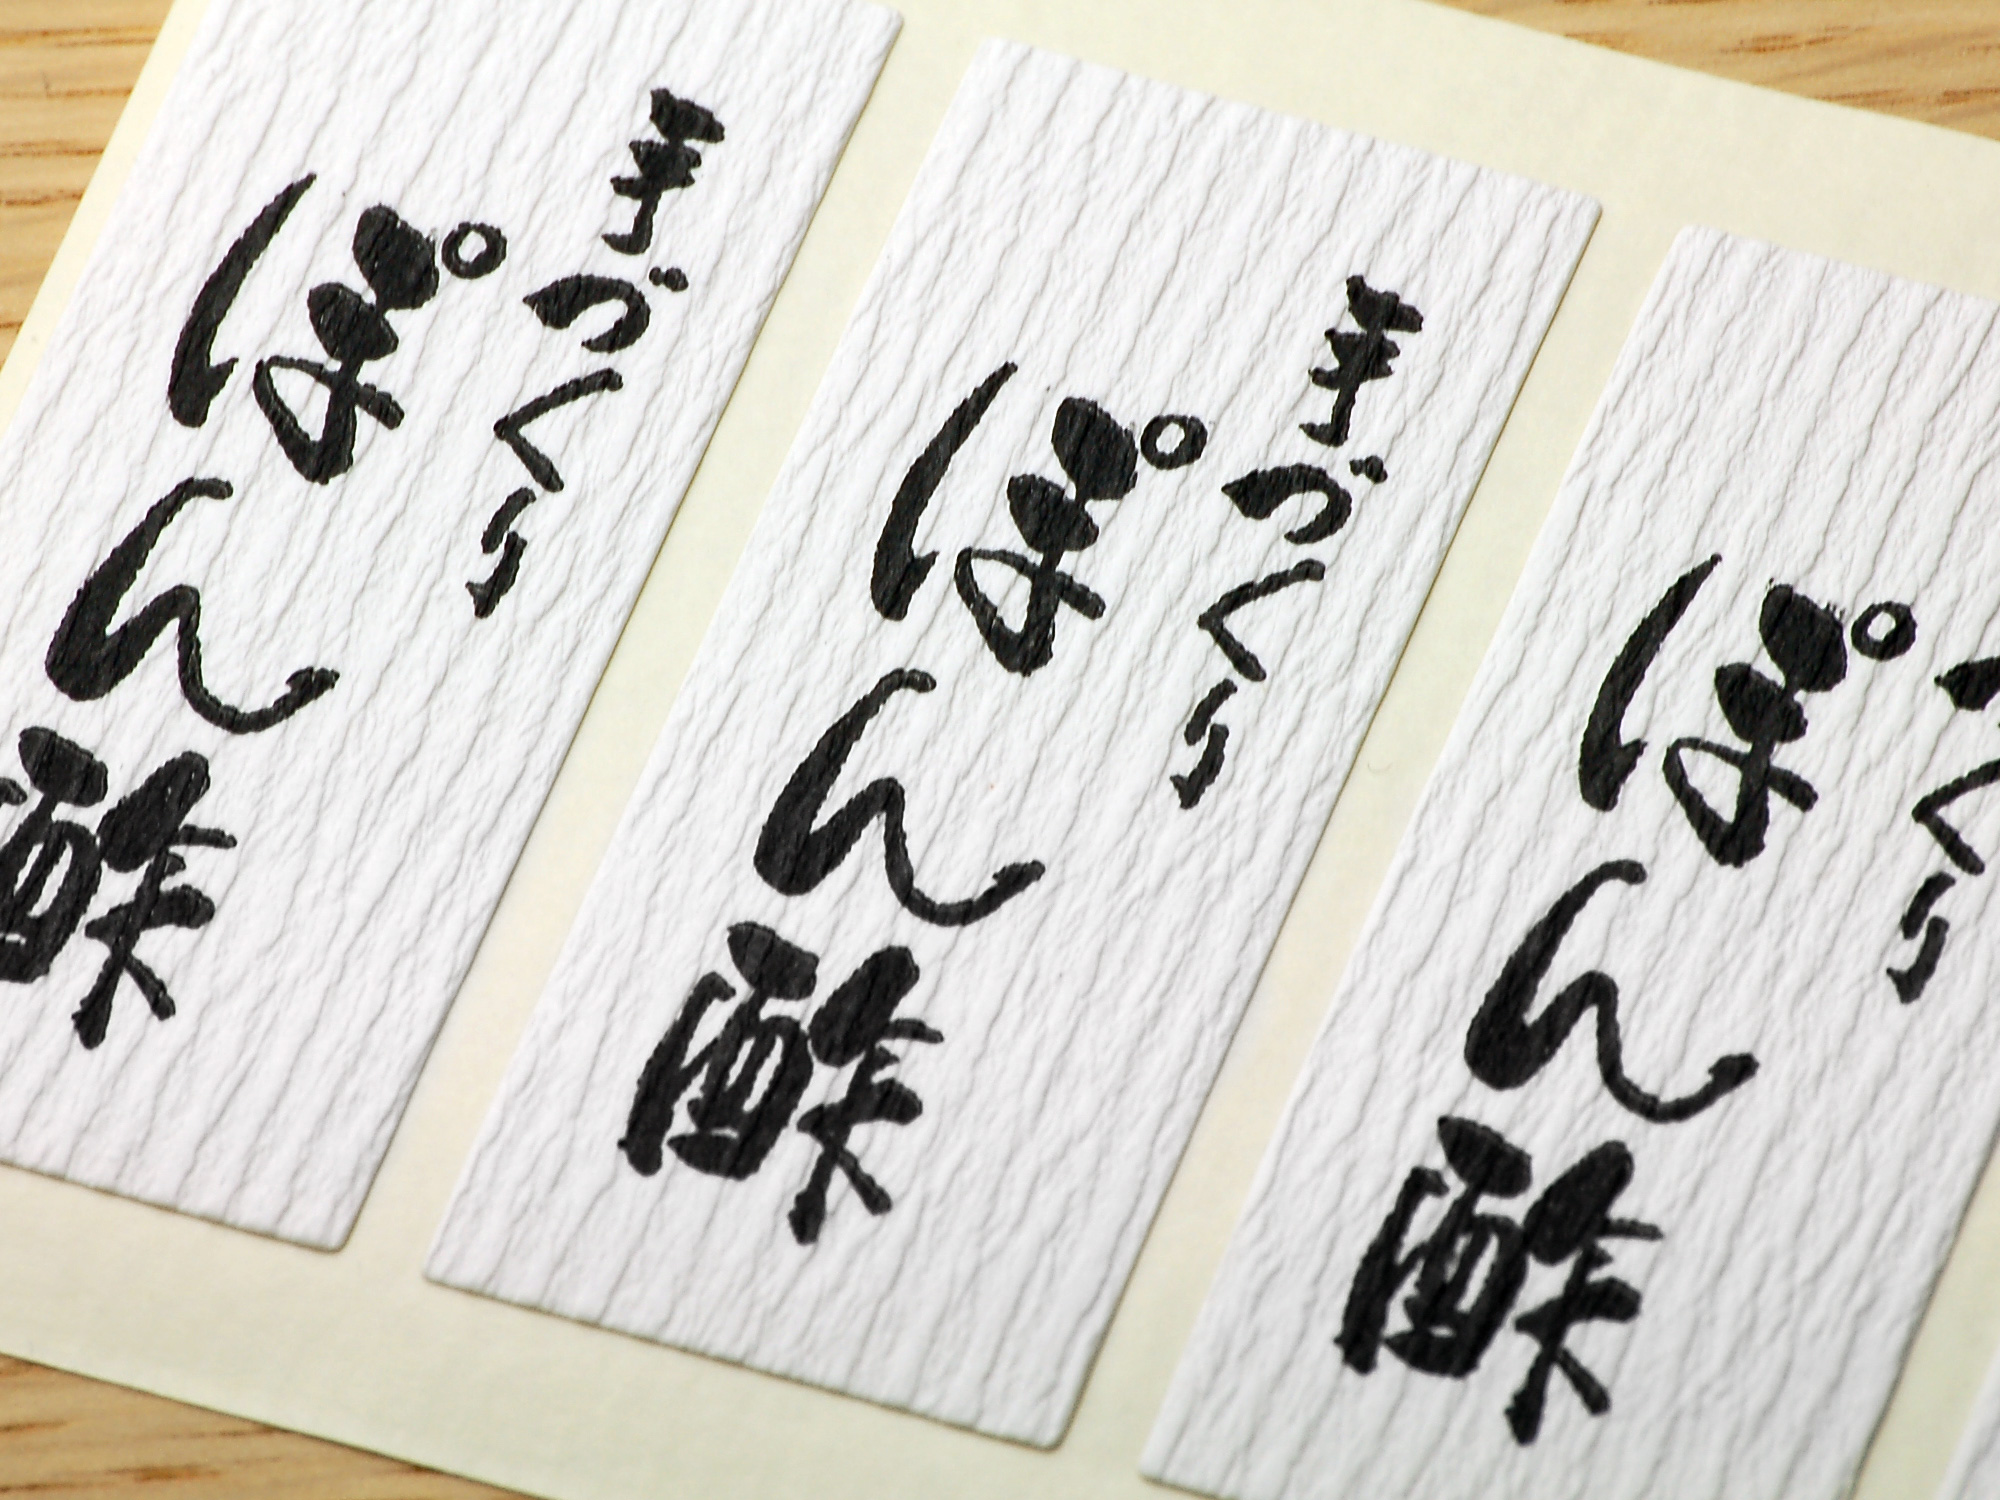 手づくり
ぽん酢
手づくり
ぽん酢
づくり
ぽん酢